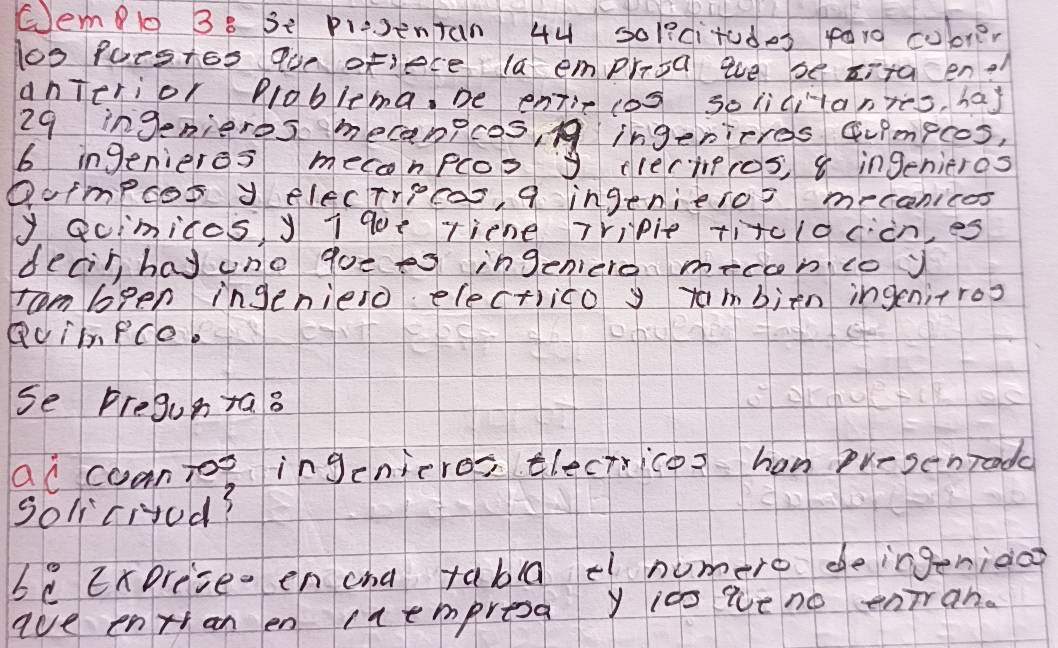 Ejemplo 3: Se presentan 44 solicitudes para cubrir
los puestos que ofrece la empresa que se cita en el
anterior problema. De entre los solicitantes, hay
29 ingenieros mecanicos, 19 ingenieros quimicos,
6 ingenieros mecanicos y electricos, 8 ingenieros
Quimicos y electricos, 9 ingenieros mecanicos
y Quimicos, y 1 que tiene triple titulacion, es
decir, hay uno que es ingeniero mecanico y
tambien ingeniero electrico y tambien ingenieros
Quimico.
Se pregunta:
a¿ cuantos ingenieros electricos han presentado
solicitud?
b¿ Exprese en una tabla el numero de ingenieros
que entran en la empresa y los que no entran.